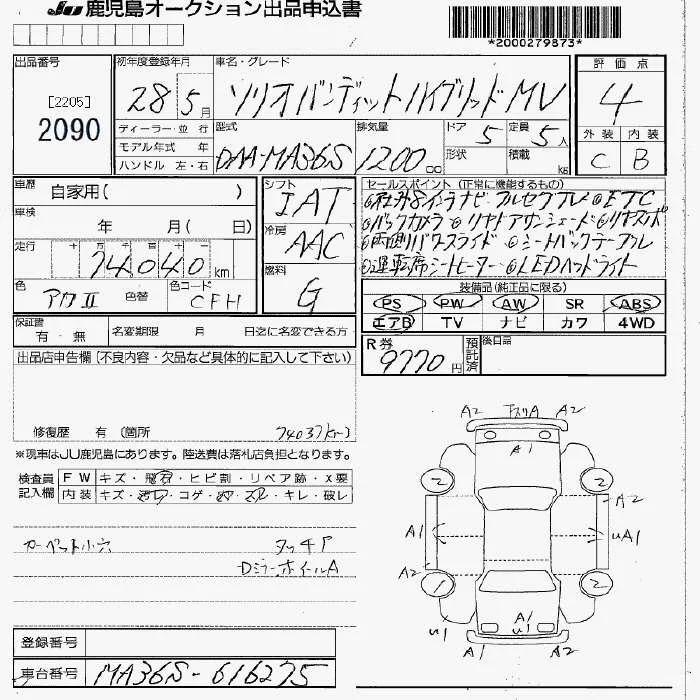 JU 鹿児島オークション出品申込書
*2000279873*
出品番号
[2205]
2090
初年度登録年月
28 5月
車名・グレード
ソリオバンディットハイブリッドMV
評価点
4
外装 内装
C B
ディーラー・並行
モデル年式 年
ハンドル 左・右
型式
DAA-MA36S
排気量
1200 cc
ドア 5
形状
定員 5人
積載 kg
車歴 自家用( )
車検 年 月( 日)
走行 十 万 千 百 十 一
74040 km
色 アワⅡ 色替 色コード CFH
シフト
IAT
冷房
AAC
燃料
G
セールスポイント (正常に機能するもの)
◎社外8インチナビ フルセグTV ◎ETC
◎バックカメラ ◎リヤドアサンシェード ◎リヤスポ
◎両側パワースライド ◎シートバックテーブル
◎運転席シートヒーター ◎LEDヘッドライト
装備品(純正品に限る)
PS PW AW SR ABS
エアB TV ナビ カワ 4WD
保証書
有・無
名変期限 月 日迄に名変できる方
R券
9770円
預託済
後日品
出品店申告欄(不良内容・欠品など具体的に記入して下さい)
修復歴 有 (箇所 74037km)
※現車はJU鹿児島にあります。陸送費は落札店負担となります。
検査員
記入欄
FW キズ・飛石・ヒビ割・リペア跡・X要
内装 キズ・汚れ・コゲ・穴・スレ・キレ・破レ
カーペット小穴 タッチア
Dミラーホイール A
A2 下スリA A2
A1
2 2
A1 A2
uA1
A2
1 2
u1 A1 u1
A1 A1
登録番号
車台番号 MA36S-616275